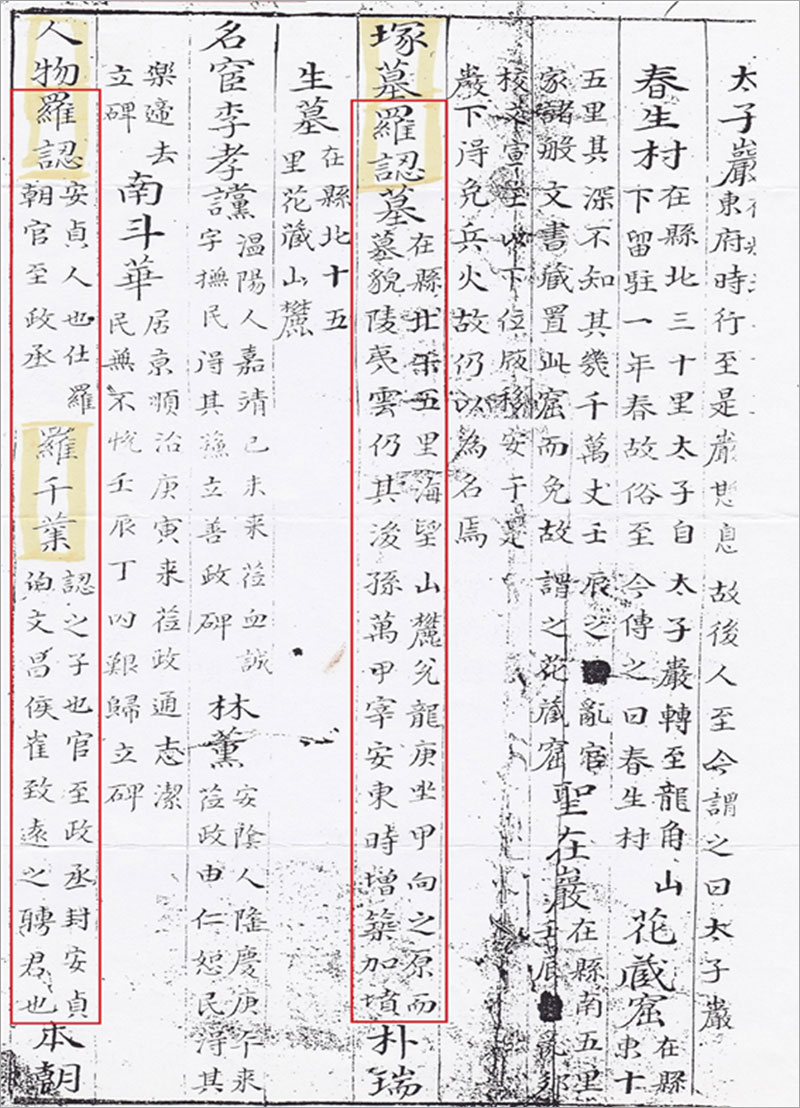 太子巖
東府時行至是巖憩息
故後人至今謂之曰太子巖
春生村
在縣北三十里太子自太子巖轉至龍角山
下留駐一年春故俗至今傳之曰春生村
花藏窟
在縣
東十
五里其深不知其幾千萬丈壬辰之亂官
家諸般文書藏置此窟而免故謂之花藏窟
聖在巖
在縣南五里
壬辰亂鄉
校文宣王以下位版移安于是
巖下得免兵火故仍以為名焉
塚墓羅認墓
在縣北十五里海望山麓兌龍庚坐甲向之原而
墓貌陵夷云仍其後孫萬甲宰安東時增築加墳
朴瑞
生墓
在縣北十五
里花藏山麓
名宦李孝讜
溫陽人嘉靖己未来莅血誠
字撫民得其立善政碑
林薰
安陰人隆慶庚午来
莅政由仁恕民得其
樂遞去
立碑
南斗華
居京順治庚寅来莅政通志潔
民無不悅壬辰丁內艱歸立碑
人物羅認
安貞人也仕羅
朝官至政丞
羅千葉
認之子也官至政丞封安貞
伯文昌侯崔致遠之聘君也
本朝